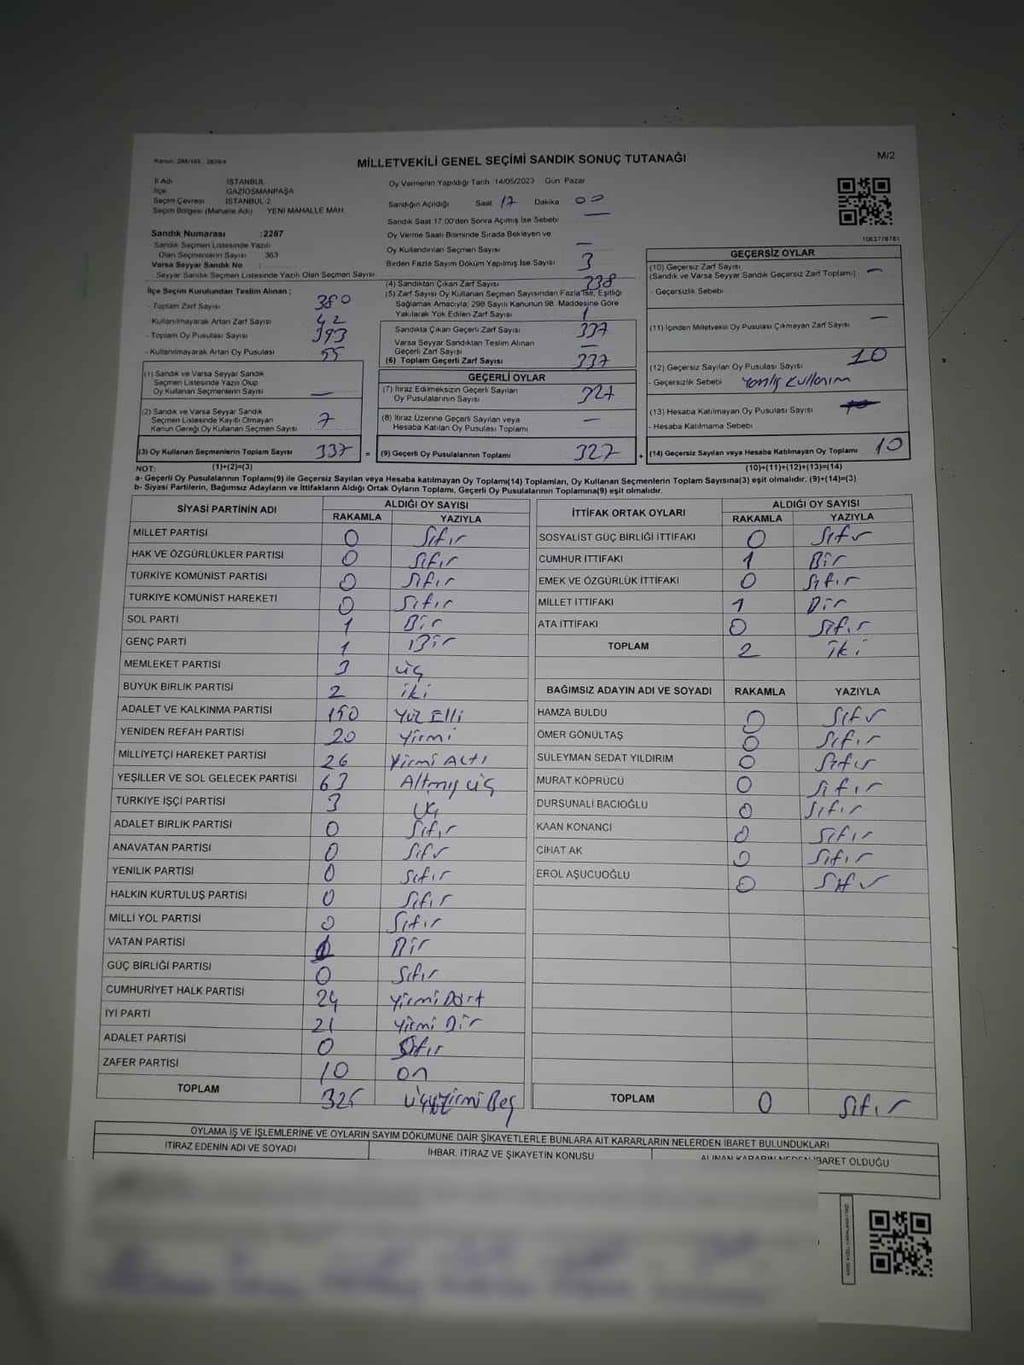 Kanun: 298/105 - 2839/4
MİLLETVEKİLİ GENEL SEÇİMİ SANDIK SONUÇ TUTANAĞI
M/2
İl Adı : İSTANBUL
İlçe : GAZİOSMANPAŞA
Seçim Çevresi : İSTANBUL-2
Seçim Bölgesi (Mahalle Adı) : YENİ MAHALLE MAH.
Sandık Numarası : 2287
Sandık Seçmen Listesinde Yazılı
Olan Seçmenlerin Sayısı : 363
Varsa Seyyar Sandık No :
Seyyar Sandık Seçmen Listesinde Yazılı Olan Seçmen Sayısı :
Oy Vermenin Yapıldığı Tarih : 14/05/2023 Gün: Pazar
Sandığın Açıldığı Saat 17 Dakika 00
Sandık Saat 17:00'den Sonra Açılmış İse Sebebi : —
Oy Verme Saati Bitiminde Sırada Bekleyen ve
Oy Kullandırılan Seçmen Sayısı —
Birden Fazla Sayım Döküm Yapılmış İse Sayısı : 3
İlçe Seçim Kurulundan Teslim Alınan ;
- Toplam Zarf Sayısı 380
- Kullanılmayarak Artan Zarf Sayısı 42
- Toplam Oy Pusulası Sayısı 393
- Kullanılmayarak Artan Oy Pusulası 55
(1) Sandık ve Varsa Seyyar Sandık
Seçmen Listesinde Yazılı Olup
Oy Kullanan Seçmenlerin Sayısı —
(2) Sandık ve Varsa Seyyar Sandık
Seçmen Listesinde Kayıtlı Olmayan
Kanun Gereği Oy Kullanan Seçmen Sayısı 7
(3) Oy Kullanan Seçmenlerin Toplam Sayısı 337 =
(4) Sandıktan Çıkan Zarf Sayısı 338
(5) Zarf Sayısı Oy Kullanan Seçmen Sayısından Fazla İse, Eşitliği
Sağlamak Amacıyla; 298 Sayılı Kanunun 98. Maddesine Göre
Yakılarak Yok Edilen Zarf Sayısı 1
Sandıkta Çıkan Geçerli Zarf Sayısı 337
Varsa Seyyar Sandıktan Teslim Alınan
Geçerli Zarf Sayısı —
(6) Toplam Geçerli Zarf Sayısı 337
GEÇERLİ OYLAR
(7) İtiraz Edilmeksizin Geçerli Sayılan
Oy Pusulalarının Sayısı 327
(8) İtiraz Üzerine Geçerli Sayılan veya
Hesaba Katılan Oy Pusulası Toplamı —
(9) Geçerli Oy Pusulalarının Toplamı 327 +
1063778781
GEÇERSİZ OYLAR
(10) Geçersiz Zarf Sayısı
(Sandık ve Varsa Seyyar Sandık Geçersiz Zarf Toplamı) —
- Geçersizlik Sebebi
(11) İçinden Milletvekili Oy Pusulası Çıkmayan Zarf Sayısı —
(12) Geçersiz Sayılan Oy Pusulası Sayısı 10
- Geçersizlik Sebebi Yanlış Kullanım
(13) Hesaba Katılmayan Oy Pusulası Sayısı
- Hesaba Katılmama Sebebi
(14) Geçersiz Sayılan veya Hesaba Katılmayan Oy Toplamı 10
NOT: (1)+(2)=(3) (10)+(11)+(12)+(13)=(14)
a- Geçerli Oy Pusulalarının Toplamı(9) ile Geçersiz Sayılan veya Hesaba katılmayan Oy Toplamı(14) Toplamları, Oy Kullanan Seçmenlerin Toplam Sayısına(3) eşit olmalıdır. (9)+(14)=(3)
b- Siyasi Partilerin, Bağımsız Adayların ve İttifakların Aldığı Ortak Oyların Toplamı, Geçerli Oy Pusulalarının Toplamına(9) eşit olmalıdır.
SİYASİ PARTİNİN ADI ALDIĞI OY SAYISI
RAKAMLA YAZIYLA
MİLLET PARTİSİ 0 Sıfır
HAK VE ÖZGÜRLÜKLER PARTİSİ 0 Sıfır
TÜRKİYE KOMÜNİST PARTİSİ 0 Sıfır
TÜRKİYE KOMÜNİST HAREKETİ 0 Sıfır
SOL PARTİ 1 Bir
GENÇ PARTİ 1 Bir
MEMLEKET PARTİSİ 3 üç
BÜYÜK BİRLİK PARTİSİ 2 iki
ADALET VE KALKINMA PARTİSİ 150 Yüz Elli
YENİDEN REFAH PARTİSİ 20 Yirmi
MİLLİYETÇİ HAREKET PARTİSİ 26 Yirmi Altı
YEŞİLLER VE SOL GELECEK PARTİSİ 63 Altmış üç
TÜRKİYE İŞÇİ PARTİSİ 3 Üç
ADALET BİRLİK PARTİSİ 0 Sıfır
ANAVATAN PARTİSİ 0 Sıfır
YENİLİK PARTİSİ 0 Sıfır
HALKIN KURTULUŞ PARTİSİ 0 Sıfır
MİLLİ YOL PARTİSİ 0 Sıfır
VATAN PARTİSİ 1 Bir
GÜÇ BİRLİĞİ PARTİSİ 0 Sıfır
CUMHURİYET HALK PARTİSİ 24 Yirmi Dört
İYİ PARTİ 21 Yirmi Bir
ADALET PARTİSİ 0 Sıfır
ZAFER PARTİSİ 10 on
TOPLAM 325 üçyüzyirmi Beş
İTTİFAK ORTAK OYLARI ALDIĞI OY SAYISI
RAKAMLA YAZIYLA
SOSYALİST GÜÇ BİRLİĞİ İTTİFAKI 0 Sıfır
CUMHUR İTTİFAKI 1 Bir
EMEK VE ÖZGÜRLÜK İTTİFAKI 0 Sıfır
MİLLET İTTİFAKI 1 Bir
ATA İTTİFAKI 0 Sıfır
TOPLAM 2 iki
BAĞIMSIZ ADAYIN ADI VE SOYADI RAKAMLA YAZIYLA
HAMZA BULDU 0 Sıfır
ÖMER GÖNÜLTAŞ 0 Sıfır
SÜLEYMAN SEDAT YILDIRIM 0 Sıfır
MURAT KÖPRÜCÜ 0 Sıfır
DURSUNALİ BACIOĞLU 0 Sıfır
KAAN KONANCI 0 Sıfır
CİHAT AK 0 Sıfır
EROL AŞUCUOĞLU 0 Sıfır
TOPLAM 0 Sıfır
OYLAMA İŞ VE İŞLEMLERİNE VE OYLARIN SAYIM DÖKÜMÜNE DAİR ŞİKAYETLERLE BUNLARA AİT KARARLARIN NELERDEN İBARET BULUNDUKLARI
İTİRAZ EDENİN ADI VE SOYADI
İHBAR, İTİRAZ VE ŞİKAYETİN KONUSU
ALINAN KARARIN NEDEN İBARET OLDUĞU